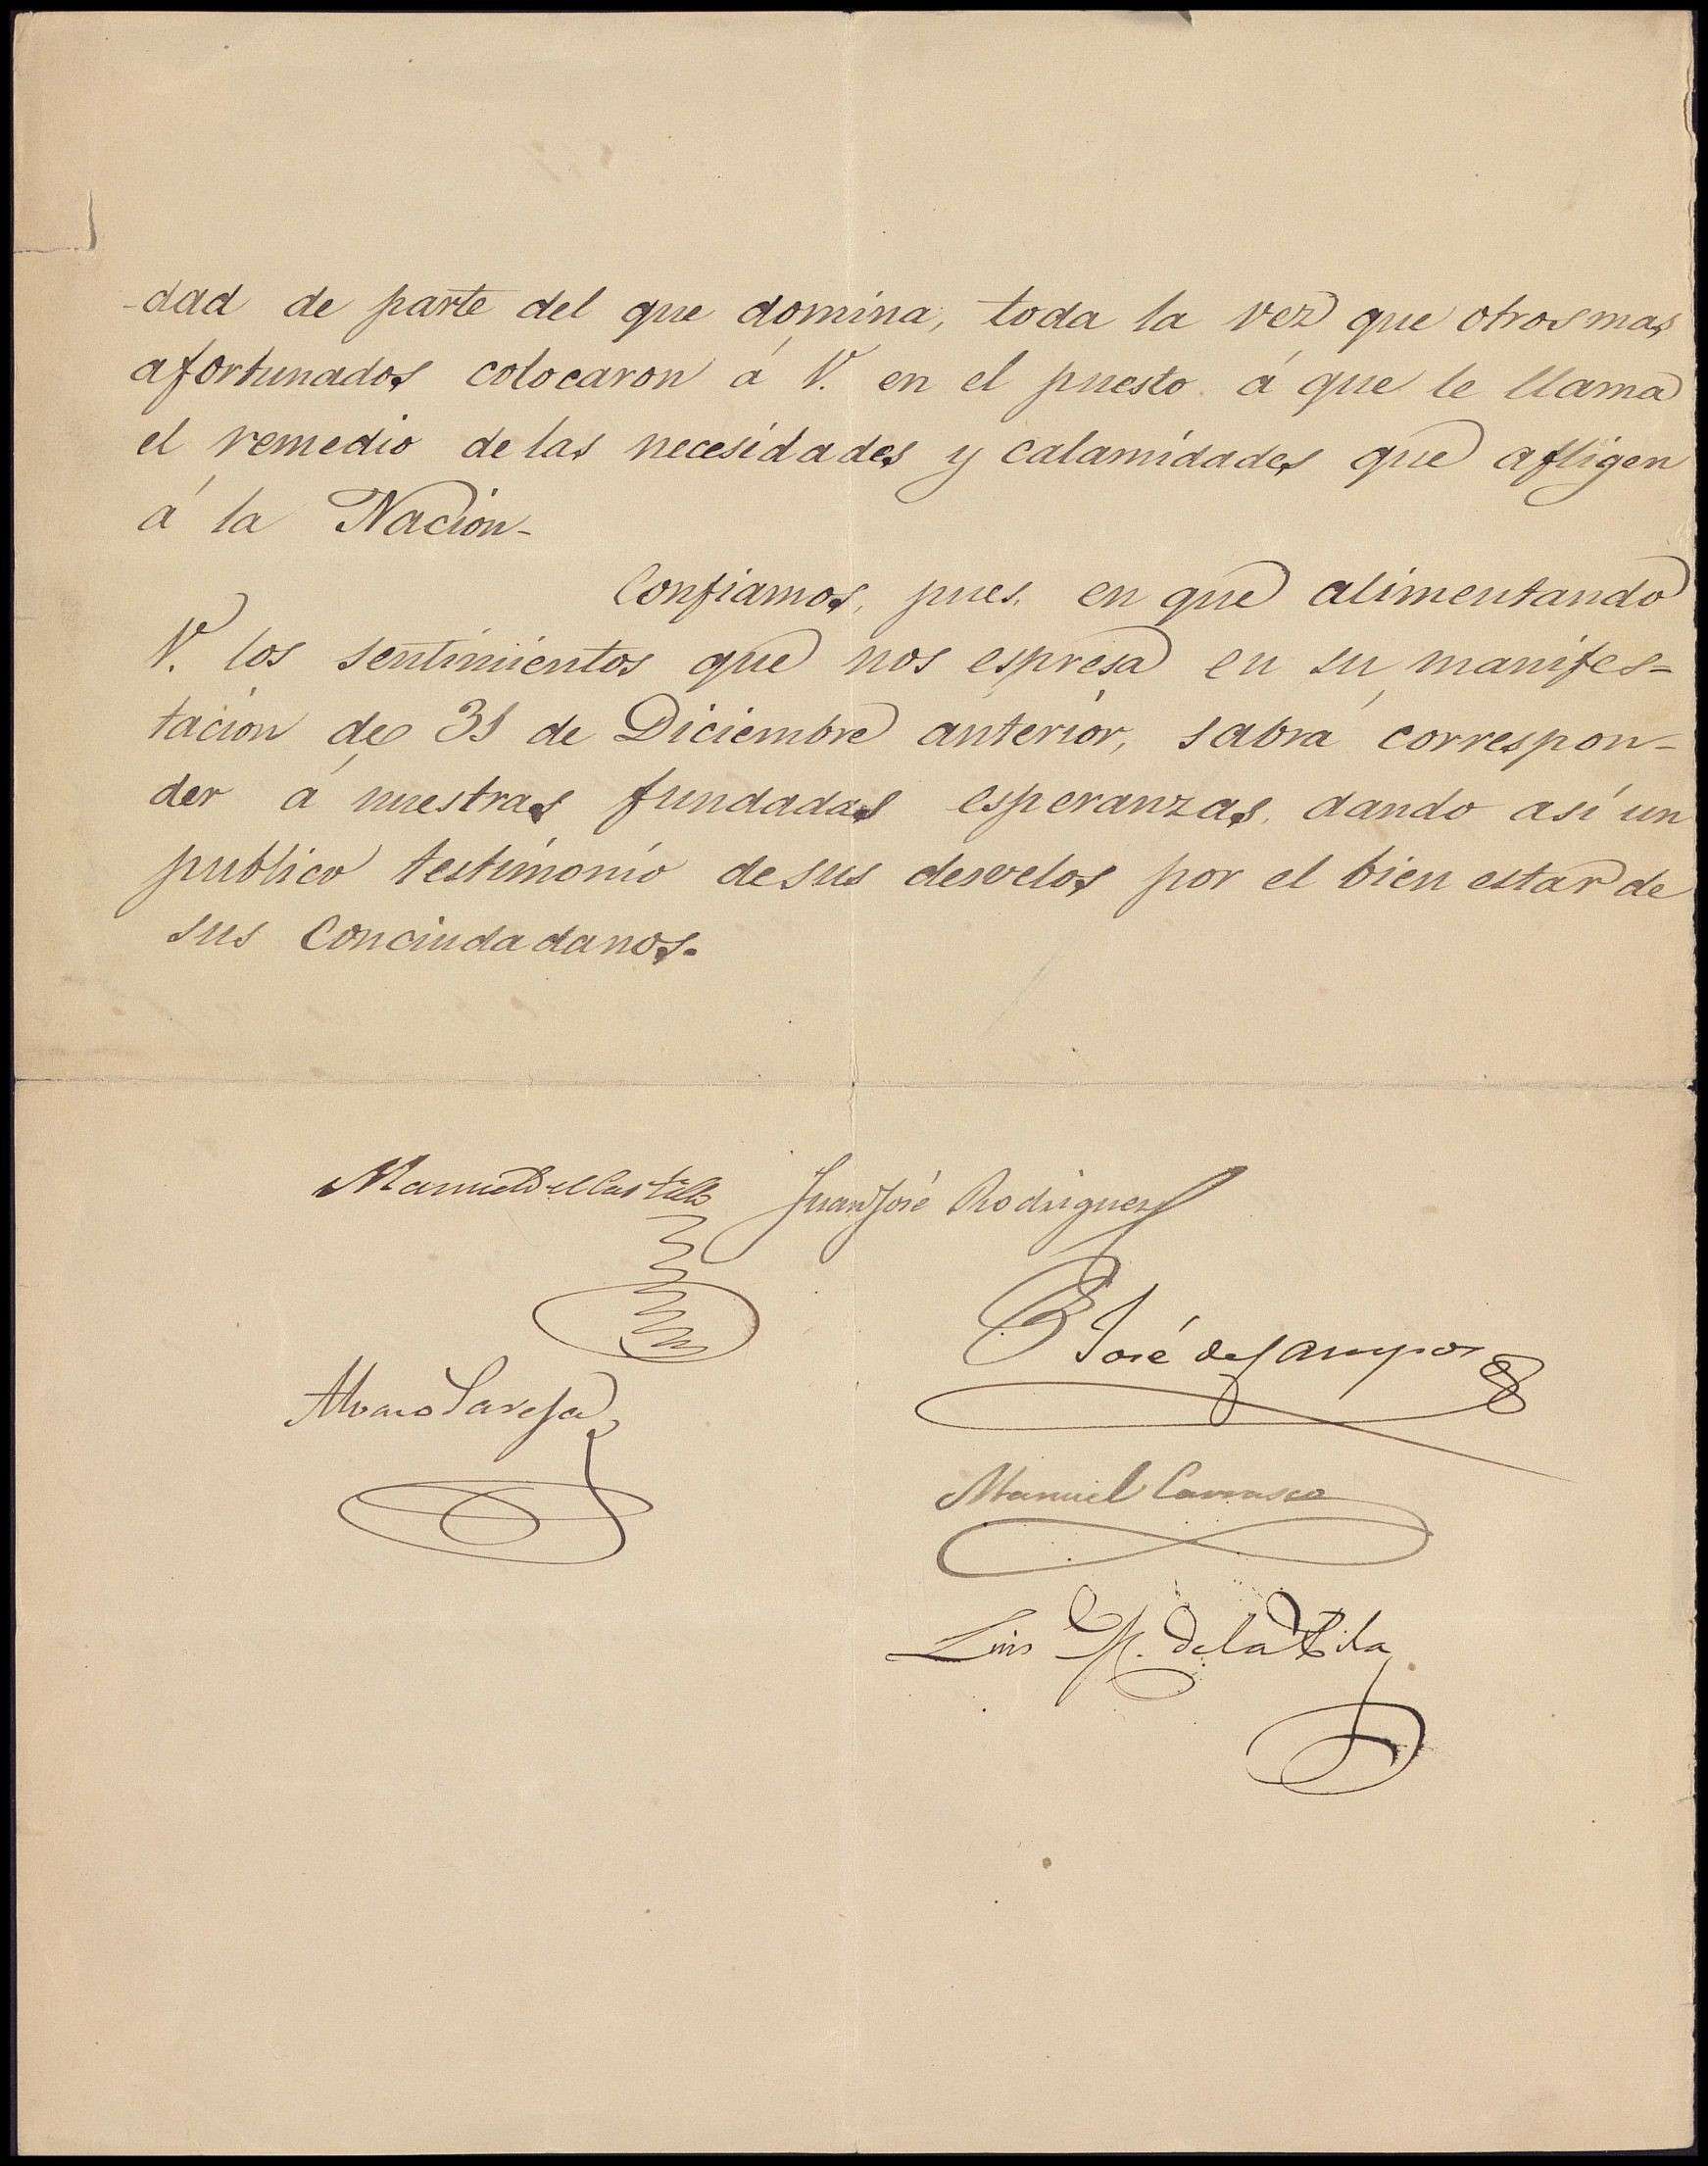 -dad de parte del que domina, toda la vez que otros mas
afortunados colocaron á V. en el puesto á que le llama
el remedio de las necesidades y calamidades que afligen
á la Nacion-
Confiamos, pues, en que alimentando
V. los sentimientos que nos espresa en su manifes=
tacion de 31 de Diciembre anterior, sabrá correspon-
der á nuestras fundadas esperanzas, dando asi un
publico testimonio de sus desvelos por el bien estar de
sus Conciudadanos.
Manuel del Castillo Juan José Rodriguez
José de Campos
Alvaro
Manuel Carrasco
Luis M. de la Pila